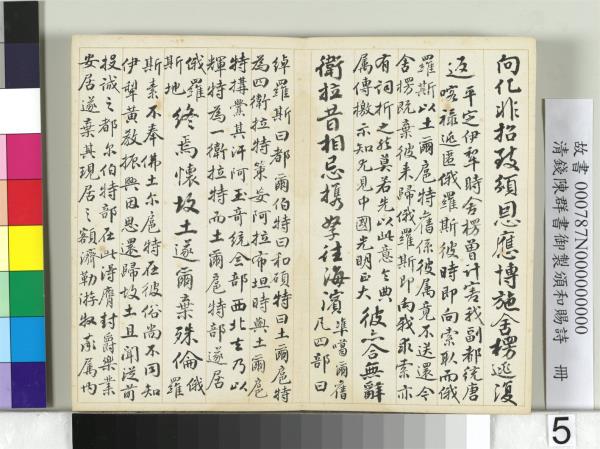 向化非招致頒恩應博施舍楞逃復
返 平定伊犂時舍楞曽计害我副都統唐
喀禄逃匿俄羅斯彼時即向索取而俄
羅斯以土爾扈特舊係彼属竟不送還今
舍楞既棄彼来歸俄羅斯即向我求索亦
有词折之然莫若先以此意令典
属傳檄示知見中國光明正大 彼亦合無辭
衛拉昔相忌携孥往海濱 準噶爾舊
凡四部曰
綽羅斯曰都爾伯特曰和碩特曰土爾扈特
為四衛拉特策妄阿拉布坦時與土爾扈
特搆釁其汗阿玉奇統全部西北去乃以
輝特為一衛拉特而土爾扈特部遂居
俄羅
斯地 終焉懷故土遂爾棄殊倫 俄
羅
斯素不奉佛土尔扈特在彼俗尚不同知
伊犂黄教振興因思還歸故土且聞從前
投誠之都尔伯特部在此得膺封爵樂業
安居遂棄其現居之額濟勒游牧率属内
故書 000787N000000000
清錢陳群書御製頒和賜詩 冊
5